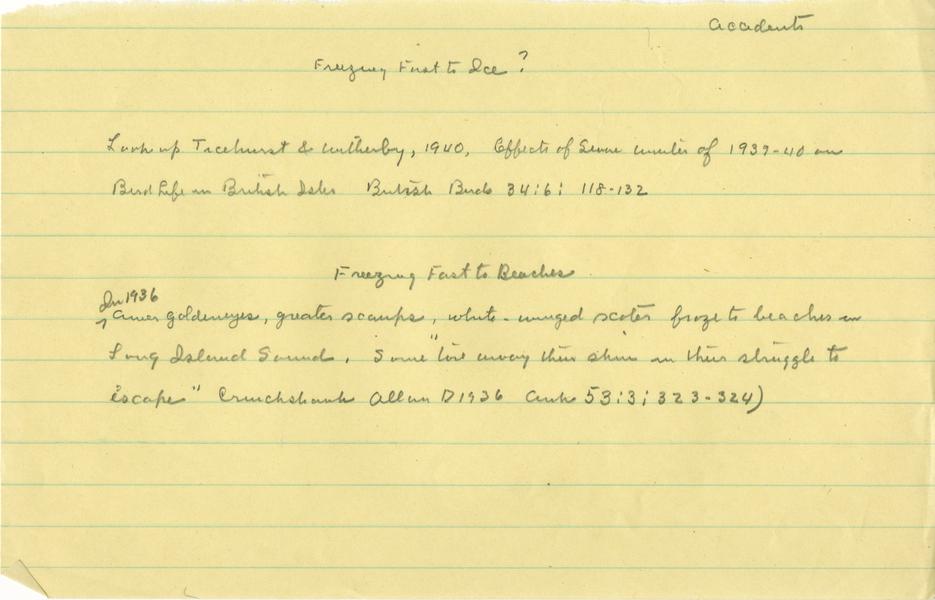 Accidents
Freezing Fast to Ice ?
Look up Ticehurst & Witherby, 1940, Effects of Severe winter of 1939-40 on
Bird Life in British Isles British Birds 34:6: 118-132
Freezing Fast to Beaches
In 1936
^ Amer goldeneyes, greater scaups, white-winged scoter froze to beaches in
Long Island Sound. Some "tore away their skin in their struggle to
escape" Cruickshank Allan D 1936 Auk 53:3; 323-324)